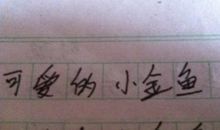 可爱的小金鱼